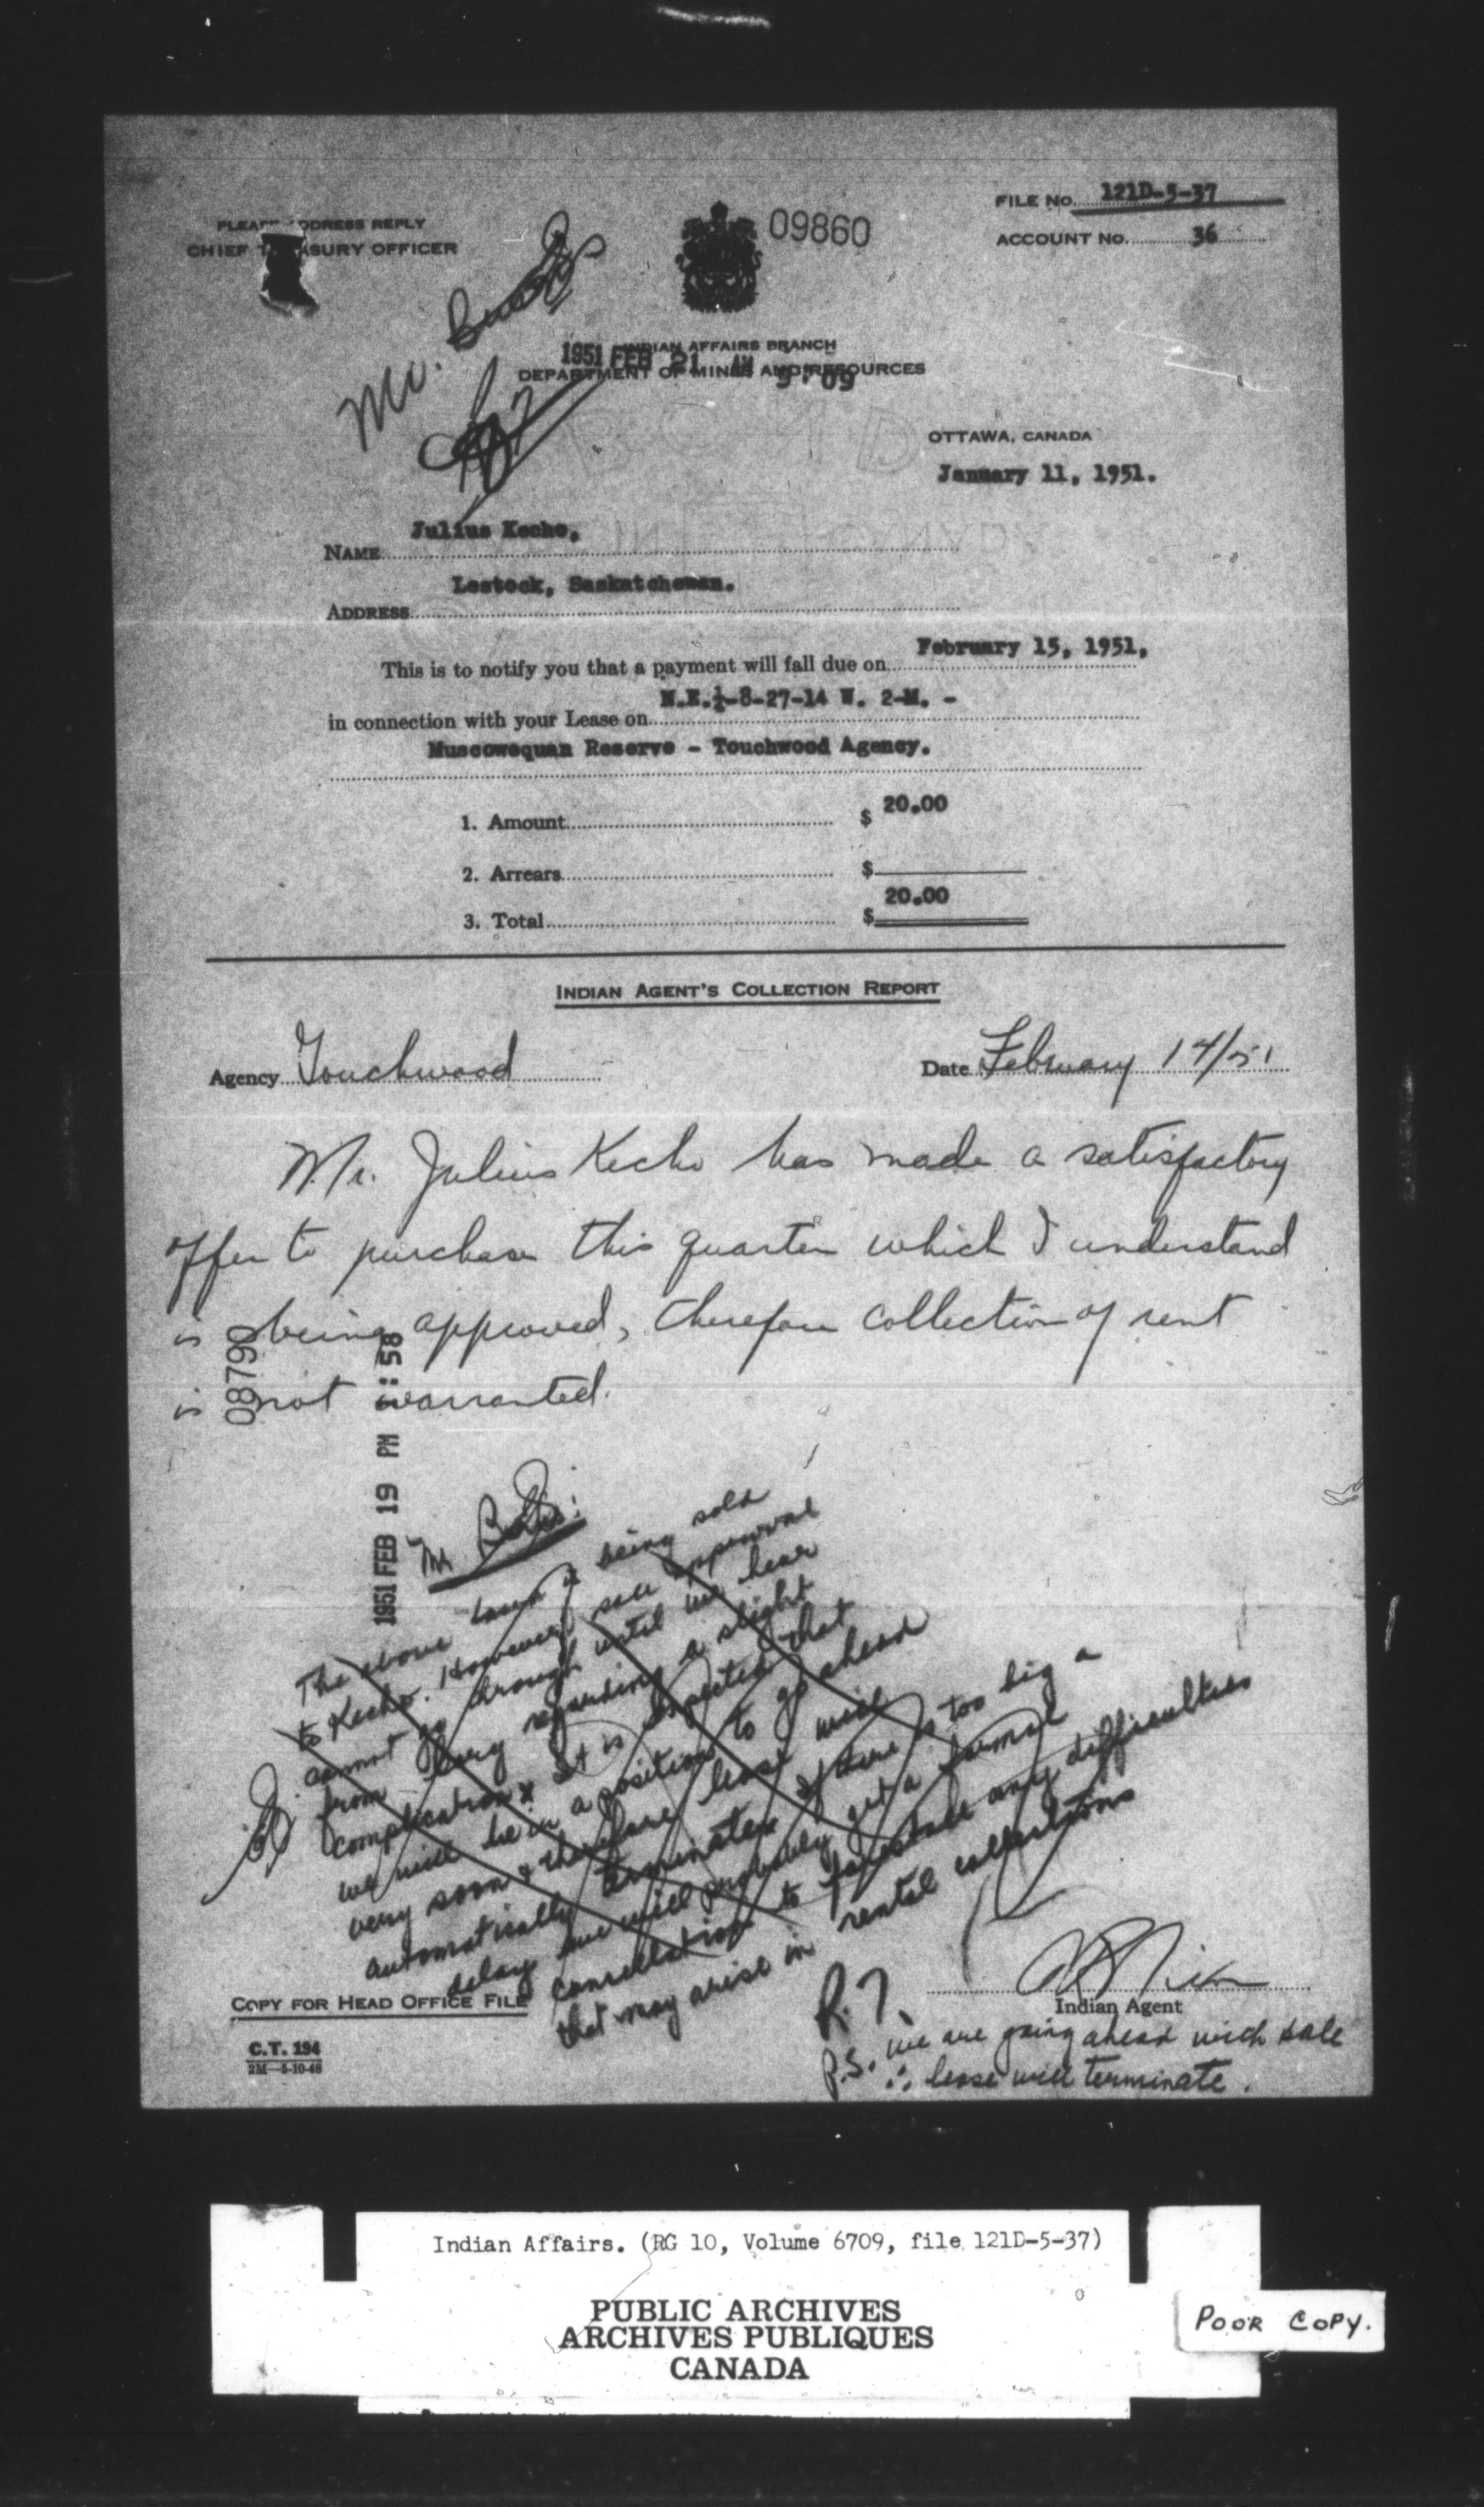 FILE NO. 121D-5-37
PLEASE ADDRESS REPLY
CHIEF TREASURY OFFICER
09860
ACCOUNT NO. 36
Mr.
INDIAN AFFAIRS BRANCH
1951 FEB 21 AM 9:09
DEPARTMENT OF MINES AND RESOURCES
OTTAWA, CANADA
January 11, 1951.
Julius Kecho,
NAME
Lestock, Saskatchewan.
ADDRESS
February 15, 1951,
This is to notify you that a payment will fall due on
N.E.¼-8-27-14 W. 2-M. -
in connection with your Lease on
Muscowequan Reserve - Touchwood Agency.
1. Amount $ 20.00
2. Arrears $
3. Total $ 20.00
INDIAN AGENT'S COLLECTION REPORT
Agency Touchwood Date February 14/51
Mr. Julius Kecho has made a satisfactory
offer to purchase this quarter which I understand
is being approved, therefore collection of rent
is not warranted.
08799
1951 FEB 19 PM :58
Mr
The above land is being sold
to Kecho. However, sale approval
cannot go through until we hear
from regarding a slight
complication. It is expected that
we will be in a position to go ahead
very soon & therefore lease will
automatically terminate. If there is too big a
delay we will probably get a formal
cancellation to forestall any difficulties
that may arise in rental collections
R.T.
Indian Agent
COPY FOR HEAD OFFICE FILE
C.T. 194
2M-5-10-48
P.S. we are going ahead with sale
∴ lease will terminate.
Indian Affairs. (RG 10, Volume 6709, file 121D-5-37)
PUBLIC ARCHIVES
ARCHIVES PUBLIQUES
CANADA
POOR COPY.